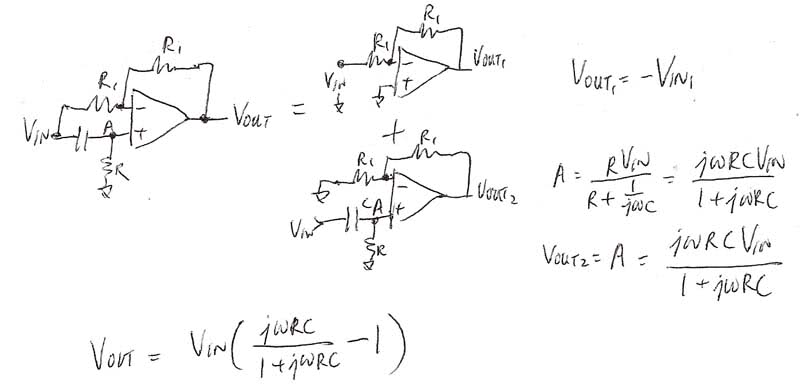 R₁
R₁
V_IN
A
-
+
R
V_OUT
=
R₁
R₁
V_IN
-
+
V_OUT₁
+
R₁
R₁
V_IN
C
A
-
+
R
V_OUT₂
V_OUT₁ = -V_IN₁
A = RV_IN / (R + 1/jωC) = jωRCV_IN / (1+jωRC)
V_OUT₂ = A = jωRCV_IN / (1+jωRC)
V_OUT = V_IN( jωRC / (1+jωRC) - 1 )